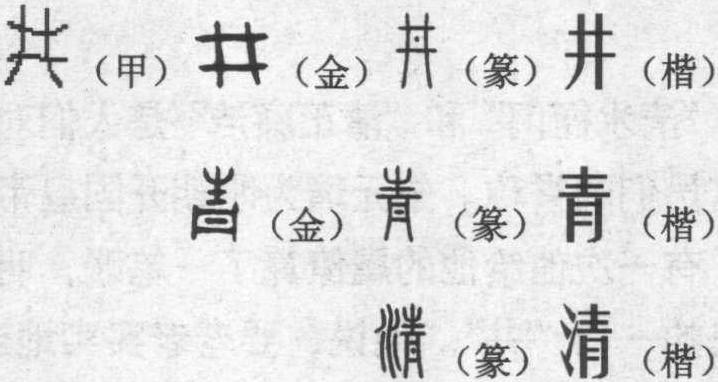 井（甲）井（金）井（篆）井（楷）
青（金）青（篆）青（楷）
清（篆）清（楷）